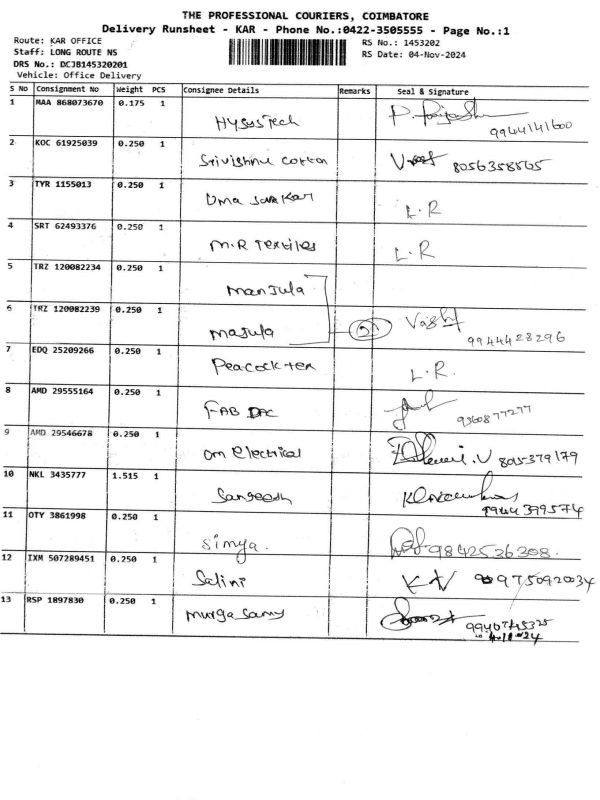 THE PROFESSIONAL COURIERS, COIMBATORE
Delivery Runsheet - KAR - Phone No.:0422-3505555 - Page No.:1
Route: KAR OFFICE
RS No.: 1453202
Staff: LONG ROUTE NS
RS Date: 04-Nov-2024
DRS No.: DCJB145320201
Vehicle: Office Delivery
S No Consignment No Weight PCS Consignee Details Remarks Seal & Signature
1 MAA 868073670 0.175 1
HysysTech 9944141600
2 KOC 61925039 0.250 1
Srivishnu Cotton 8056358565
3 TYR 1155013 0.250 1
Uma Sankar L.R
4 SRT 62493376 0.250 1
M.R Textiles L.R
5 TRZ 120082234 0.250 1
Manjula
6 TRZ 120082239 0.250 1
Majula 9944428296
7 EDQ 25209266 0.250 1
Peacock tex L.R.
8 AMD 29555164 0.250 1
FAB 9360877277
9 AMD 29546678 0.250 1
Om Electrical
10 NKL 3435777 1.515 1
Sangeesh 9944399574
11 OTY 3861998 0.250 1
Simya. 9842536308.
12 IXM 507289451 0.250 1
Salini 975092034
13 RSP 1897830 0.250 1
Murga Samy 9940745325
4.11.24